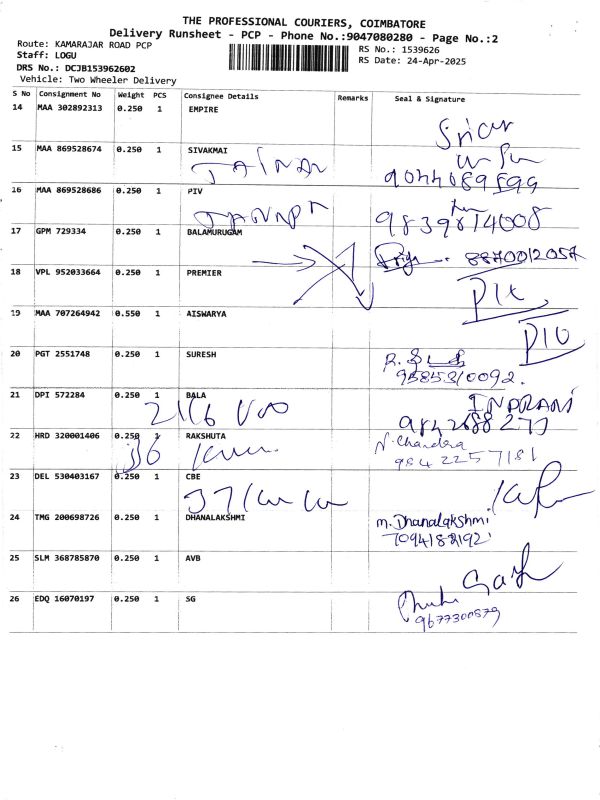 THE PROFESSIONAL COURIERS, COIMBATORE
Delivery Runsheet - PCP - Phone No.:9047080280 - Page No.:2
Route: KAMARAJAR ROAD PCP
RS No.: 1539626
Staff: LOGU
RS Date: 24-Apr-2025
DRS No.: DCJB153962602
Vehicle: Two Wheeler Delivery
S No Consignment No Weight PCS Consignee Details Remarks Seal & Signature
14 MAA 302892313 0.250 1 EMPIRE
15 MAA 869528674 0.250 1 SIVAKMAI
9044089899
16 MAA 869528686 0.250 1 PIV
9839814008
17 GPM 729334 0.250 1 BALAMURUGAM
Priya 8870012057
18 VPL 952033664 0.250 1 PREMIER
19 MAA 707264942 0.550 1 AISWARYA
20 PGT 2551748 0.250 1 SURESH
9585310092.
21 DPI 572284 0.250 1 BALA
INDRANI
22 HRD 320001406 0.250 1 RAKSHUTA
N. Chandra
984 2257181
23 DEL 530403167 0.250 1 CBE
24 TMG 200698726 0.250 1 DHANALAKSHMI
m. Dhanalakshmi
7094182192
25 SLM 368785870 0.250 1 AVB
26 EDQ 16070197 0.250 1 SG
9677300579